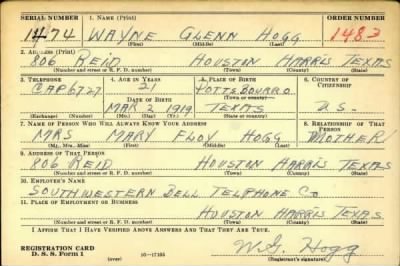 SERIAL NUMBER 1. NAME (Print) ORDER NUMBER
1474 WAYNE GLENN HOGG 1483
(First) (Middle) (Last)
2. ADDRESS (Print)
806 REID HOUSTON HARRIS TEXAS
(Number and street or R. F. D. number) (Town) (County) (State)
3. TELEPHONE 4. AGE IN YEARS 5. PLACE OF BIRTH 6. COUNTRY OF CITIZENSHIP
CAP6727 21
DATE OF BIRTH (Town or county)
MAR 2 1919 TEXAS U.S.
(Exchange) (Number) (Mo.) (Day) (Yr.) (State or country)
7. NAME OF PERSON WHO WILL ALWAYS KNOW YOUR ADDRESS 8. RELATIONSHIP OF THAT PERSON
MRS MARY FLOY HOGG MOTHER
(Mr., Mrs., Miss) (First) (Middle) (Last)
9. ADDRESS OF THAT PERSON
806 REID HOUSTON HARRIS TEXAS
(Number and street or R. F. D. number) (Town) (County) (State)
10. EMPLOYER'S NAME
SOUTHWESTERN BELL TELPHONE CO
11. PLACE OF EMPLOYMENT OR BUSINESS
HOUSTON HARRIS TEXAS
(Number and street or R. F. D. number) (Town) (County) (State)
I AFFIRM THAT I HAVE VERIFIED ABOVE ANSWERS AND THAT THEY ARE TRUE.
REGISTRATION CARD W.G. Hogg
D. S. S. Form 1 (over) 16—17105 (Registrant's signature)